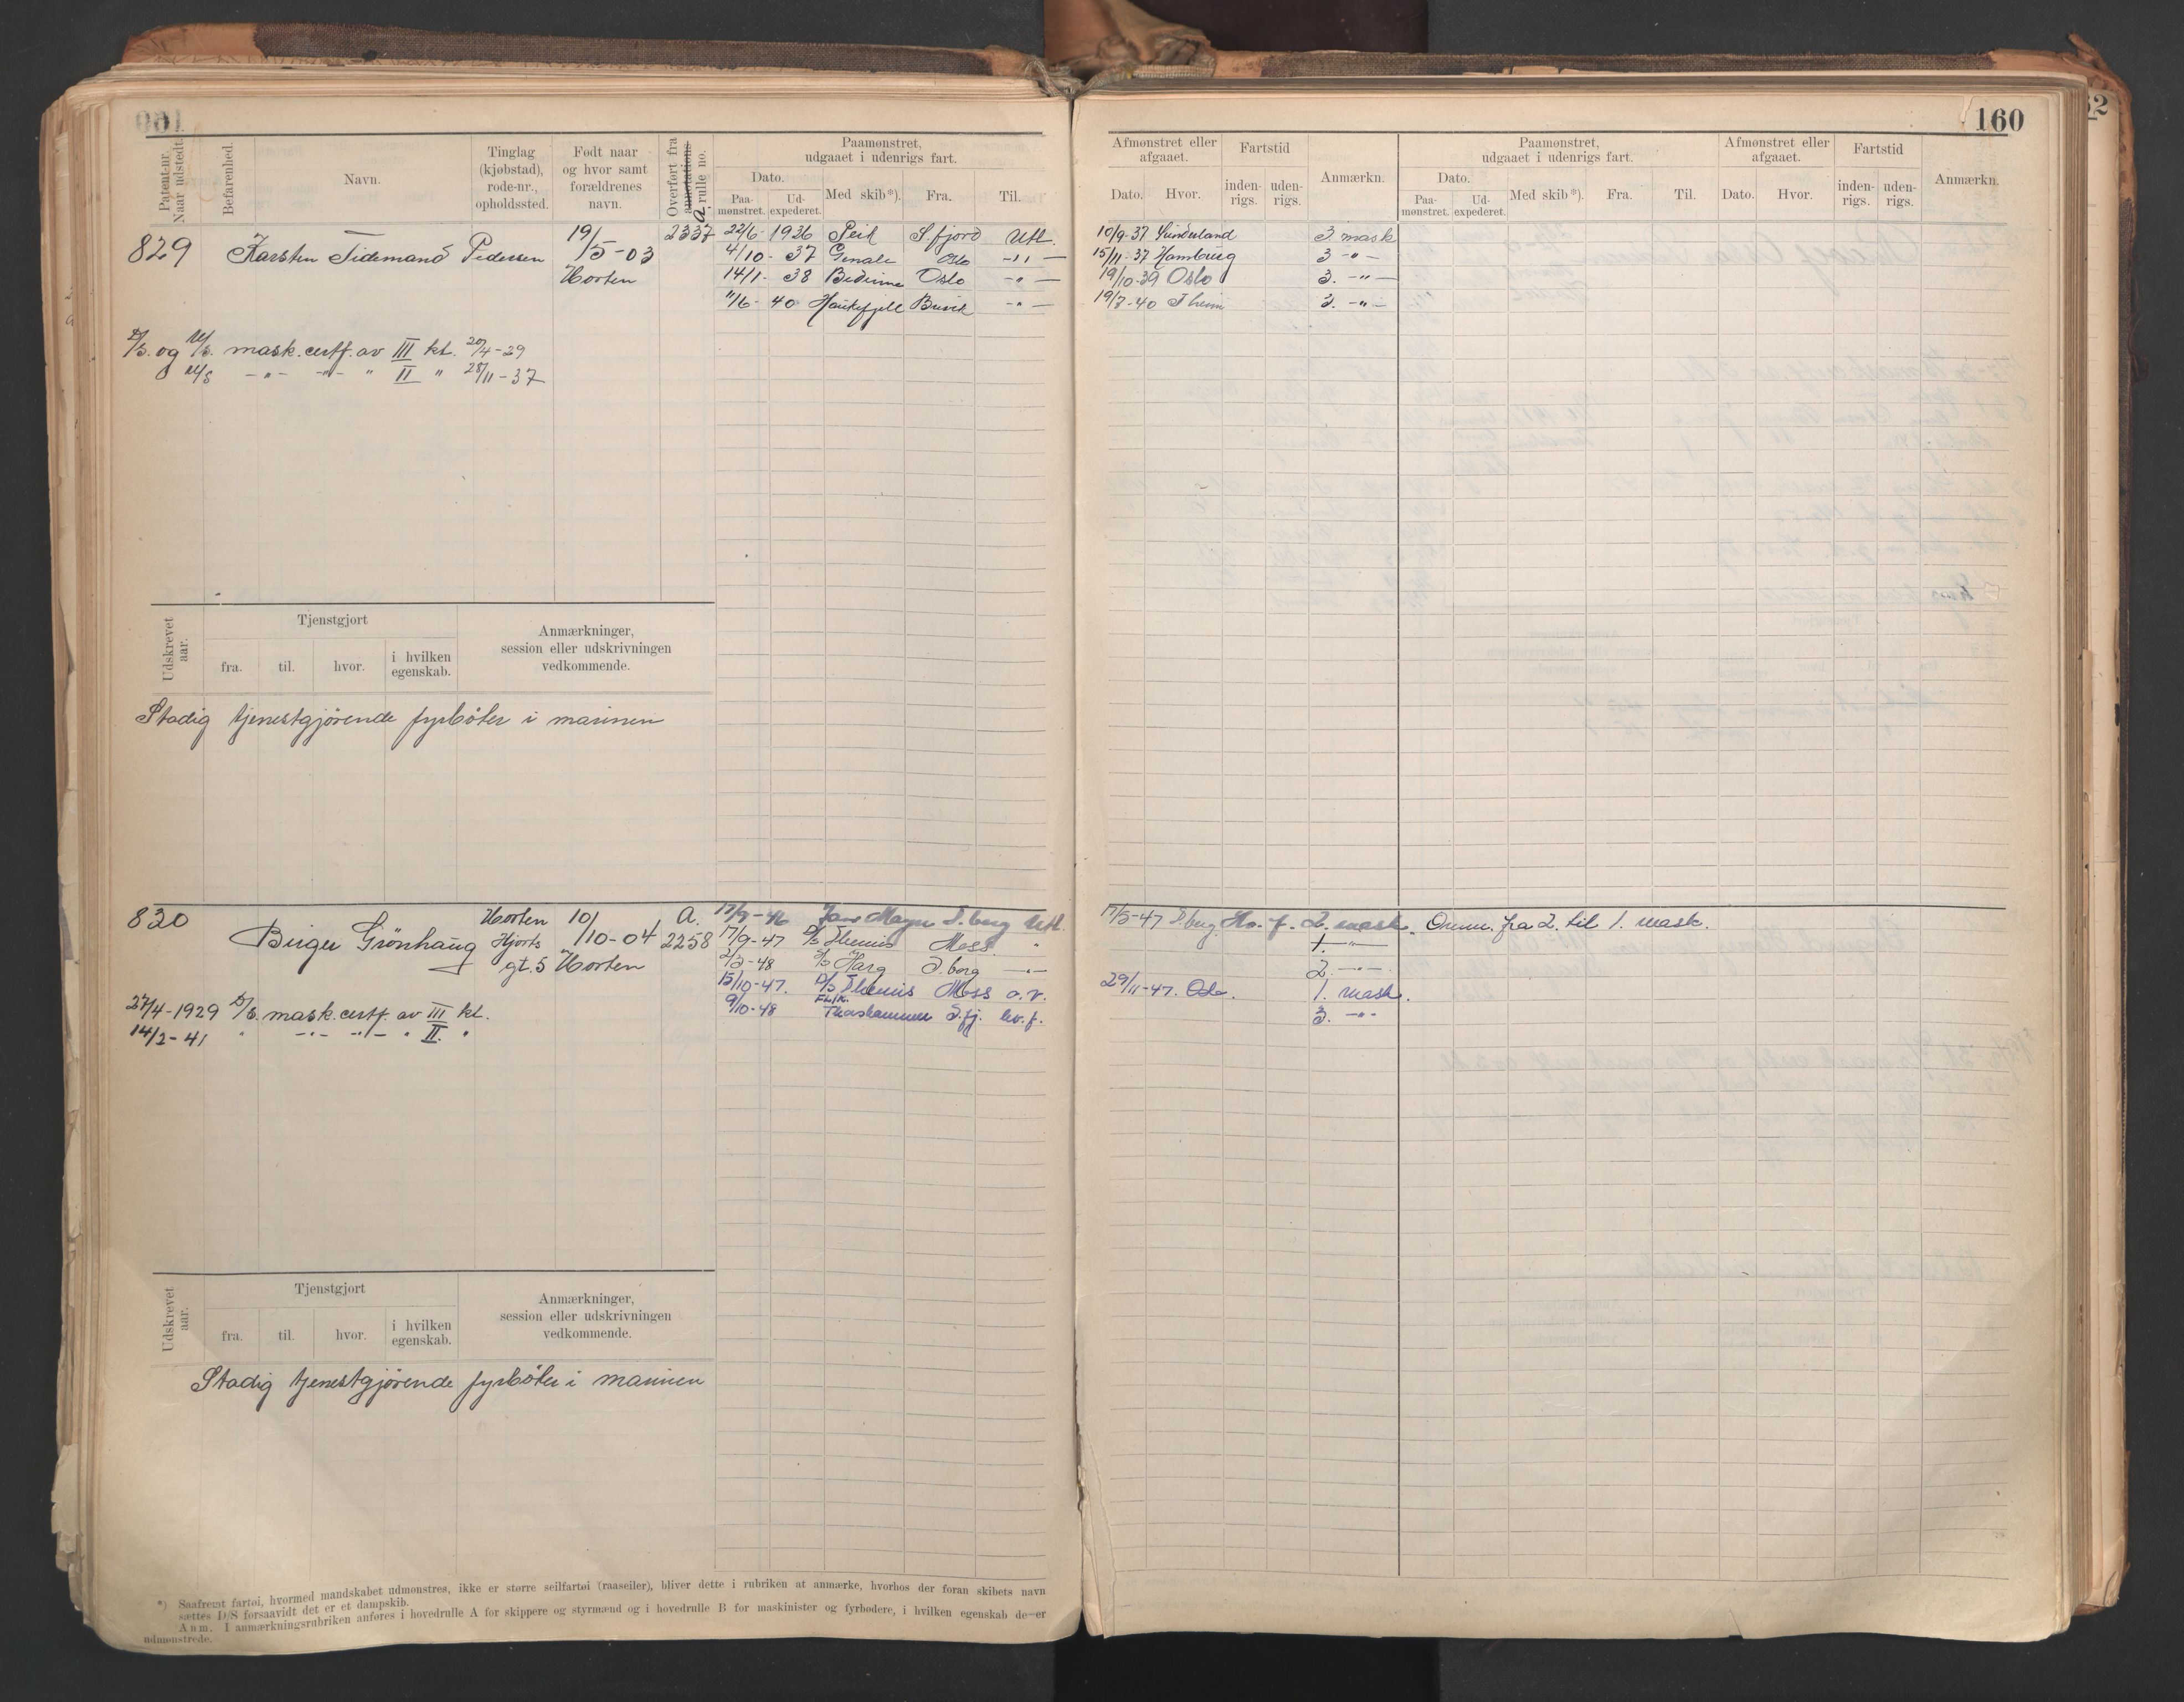 160
Patent-nr. Naar udstedt.
Befarenhed.
Navn.
Tinglag (kjøbstad), rode-nr., opholdssted.
Født naar og hvor samt forældrenes navn.
Overført fra annotations A rulle no.
Paamønstret, udgaaet i udenrigs fart.
Dato.
Paa-mønstret.
Ud-expederet.
Med skib*).
Fra.
Til.
829 Karsten Tidemand Pedersen 19/5-03 Horten 2337
22/6- 1926 Peik S fjord Utl.
4/10- 37 Oslo -"-
14/1- 38 Oslo -"-
11/6- 40 Haukefjell -"-
D/S. og M/S. mask. certf. av III kl. 20/4-29
M/S -"- -"- " II " 28/11-37
Udskrevet aar.
Tjenstgjort
fra. til. hvor. i hvilken egenskab.
Anmærkninger, session eller udskrivningen vedkommende.
Stadig tjenestgjørende fyrbøter i marinen
830 Birger Grönhaug Horten Hjorts gt. 5 10/10-04 Horten A. 2258
17/9-46 Jan Mayn T.berg Utl.
17/9-47 D/S Themis Moss "
2/3-48 D/S Harg T.berg -"-
15/10-47. D/S Themis Moss a.v.
9/10-48 Thorshammer S.fj. hv.f.
27/4-1929 D/S. mask. certf. av III kl.
14/2-41 " -"- -"- " II. "
Udskrevet aar.
Tjenstgjort
fra. til. hvor. i hvilken egenskab.
Anmærkninger, session eller udskrivningen vedkommende.
Stadig tjenestgjørende fyrbøter i marinen
*) Saafremt fartøi, hvormed mandskabet udmønstres, ikke er større seilfartøi (raaseiler), bliver dette i rubriken at anmærke, hvorhos der foran skibets navn
sættes D/S forsaavidt det er et dampskib.
Anm. I anmærkningsrubriken anføres i hovedrulle A for skippere og styrmænd og i hovedrulle B for maskinister og fyrbødere, i hvilken egenskab de er
udmønstrede.
160
Afmønstret eller afgaaet.
Dato. Hvor.
Fartstid
inden-rigs. uden-rigs.
Anmærkn.
Paamønstret, udgaaet i udenrigs fart.
Dato.
Paa-mønstret. Ud-expederet.
Med skib*). Fra. Til.
Afmønstret eller afgaaet.
Dato. Hvor.
Fartstid
inden-rigs. uden-rigs.
Anmærkn.
10/9-37 Sunderland 3. mask
15/11-37 Hamburg 3 -"-
19/10-39 Oslo 3. -"-
19/7-40 T heim 3. -"-
17/5-47 T.berg 2. mask. Omm. fra 2. til 1. mask.
1. -"-
2. -"-
29/11-47. Oslo. 1. mask.
3. -"-